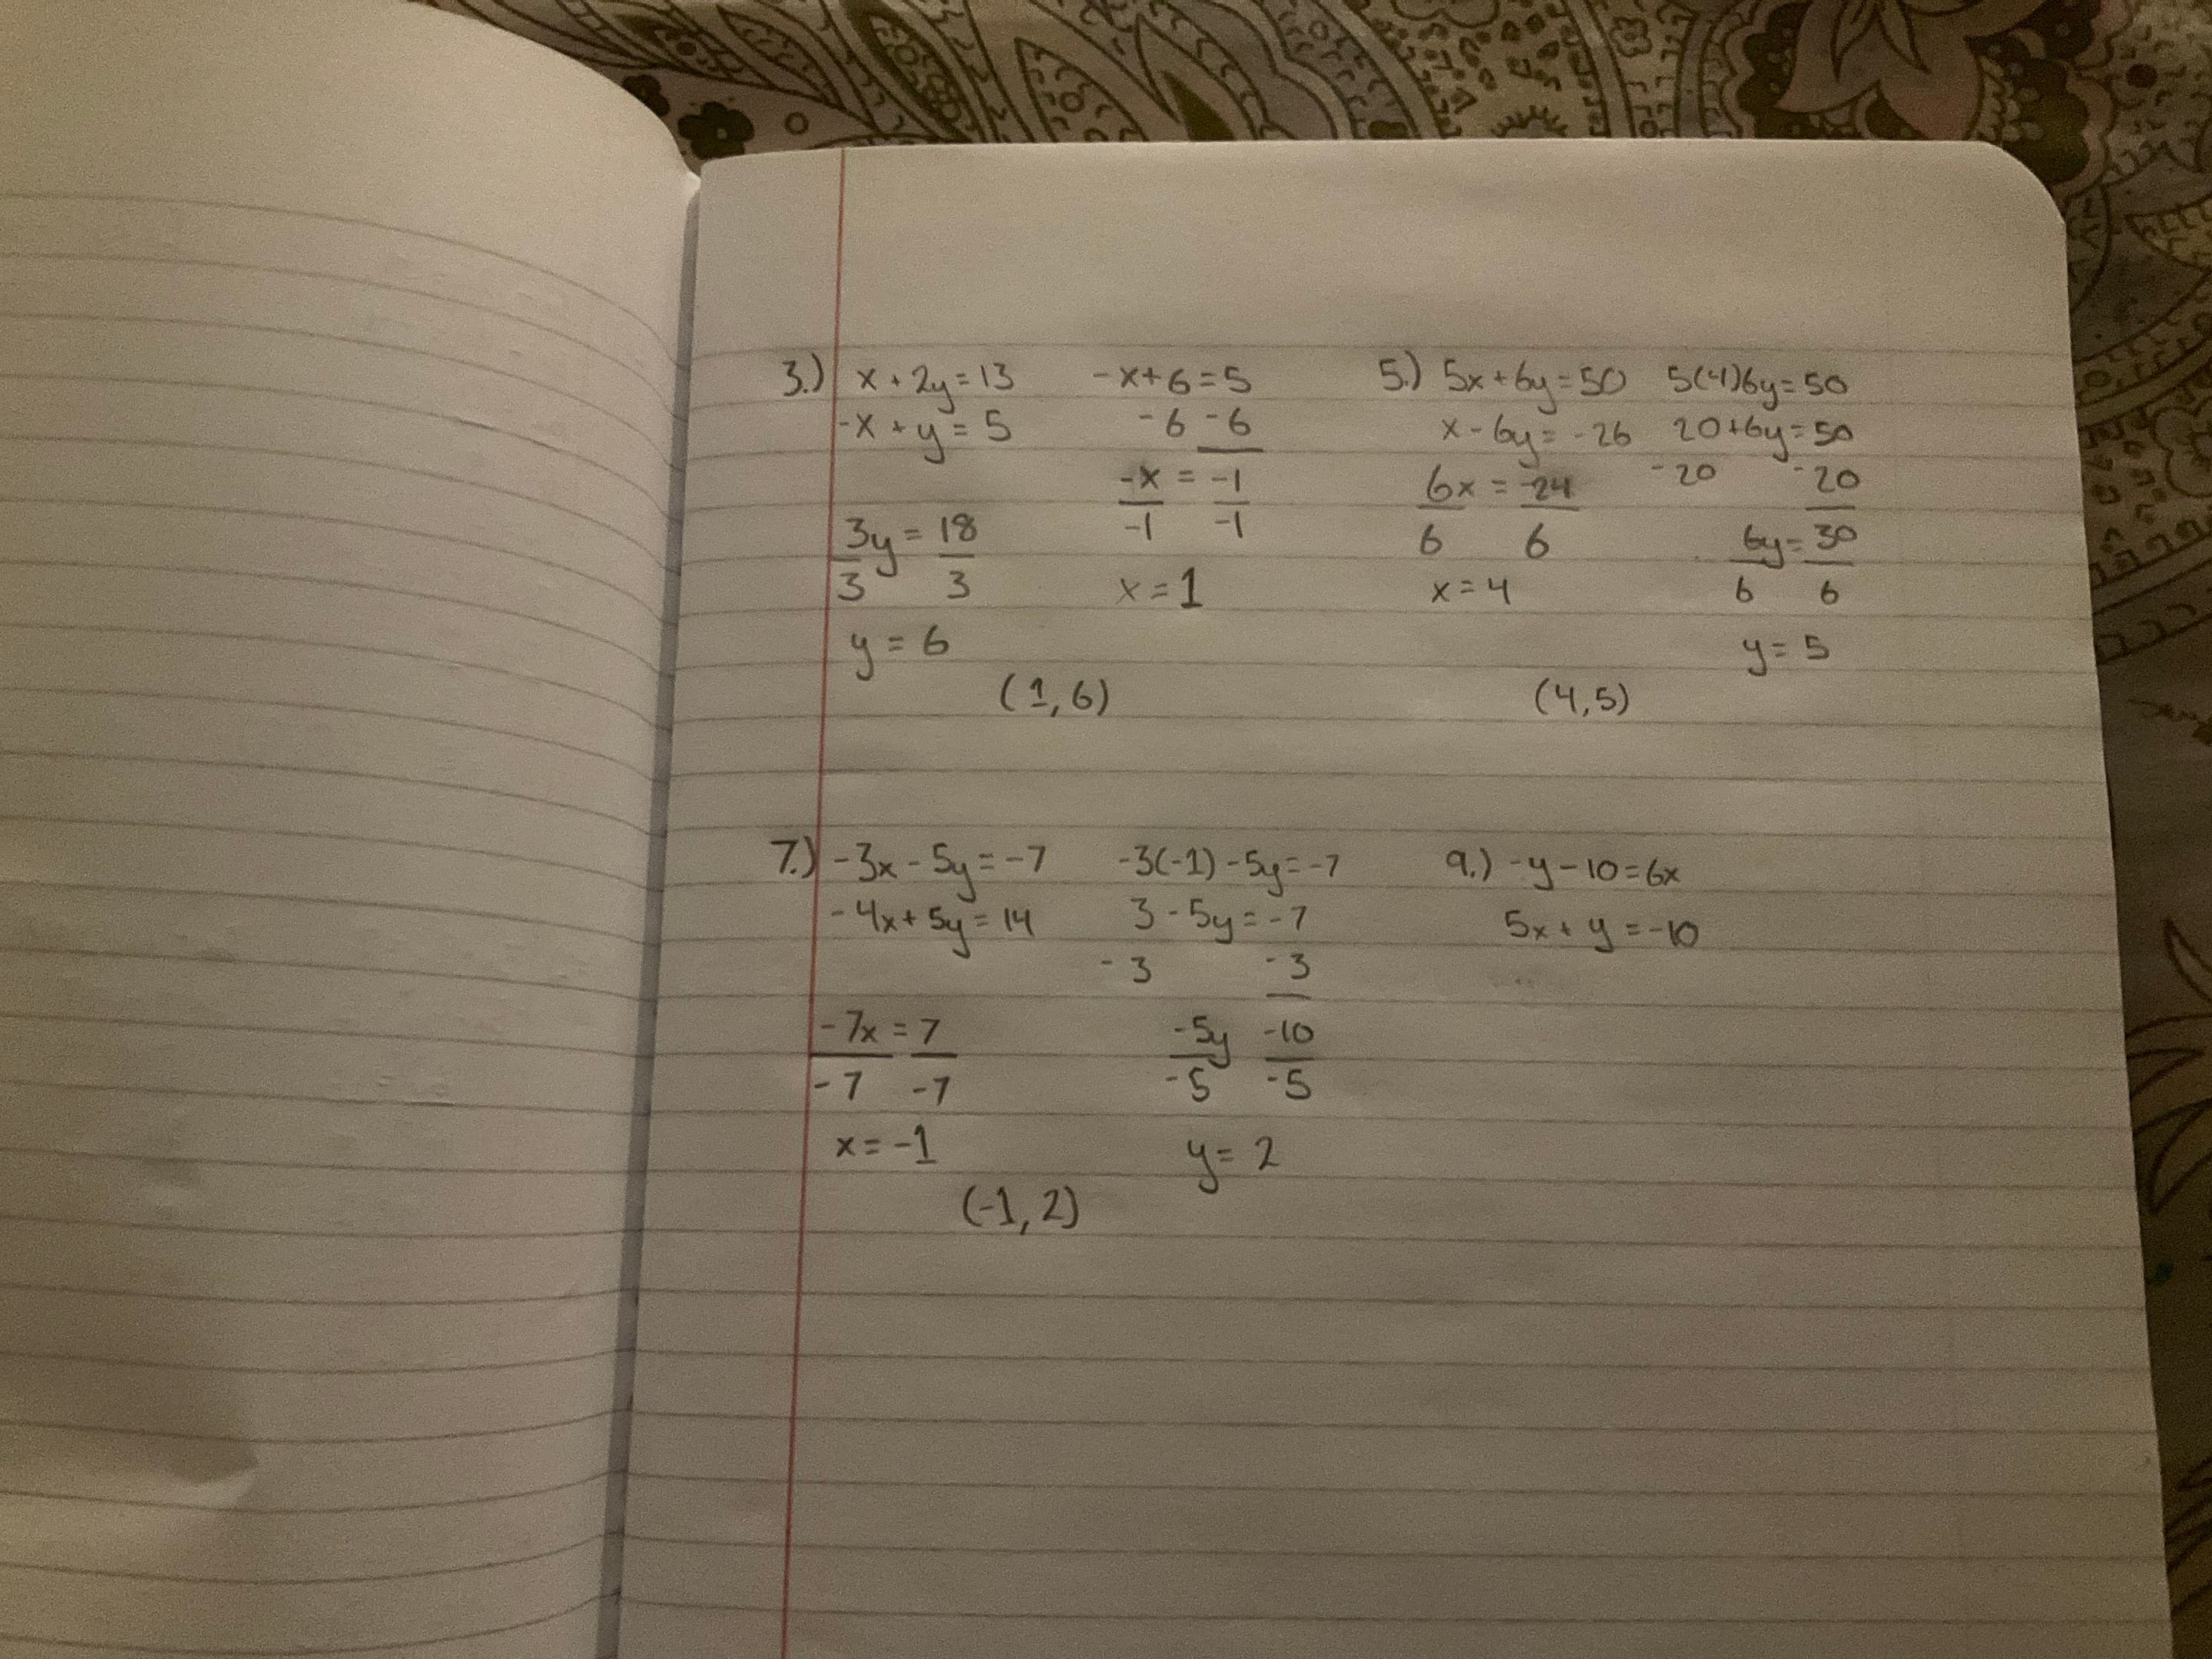 3.) x + 2y = 13
-x + y = 5
3y = 18
3 3
y = 6
-x + 6 = 5
-6 -6
-x = -1
-1 -1
x = 1
(1, 6)
5.) 5x + 6y = 50
x - 6y = -26
6x = 24
6 6
x = 4
5(4)6y = 50
20 + 6y = 50
-20 -20
6y = 30
6 6
y = 5
(4, 5)
7.) -3x - 5y = -7
-4x + 5y = 14
-7x = 7
-7 -7
x = -1
-3(-1) - 5y = -7
3 - 5y = -7
-3 -3
-5y -10
-5 -5
y = 2
(-1, 2)
9.) -y - 10 = 6x
5x + y = -10